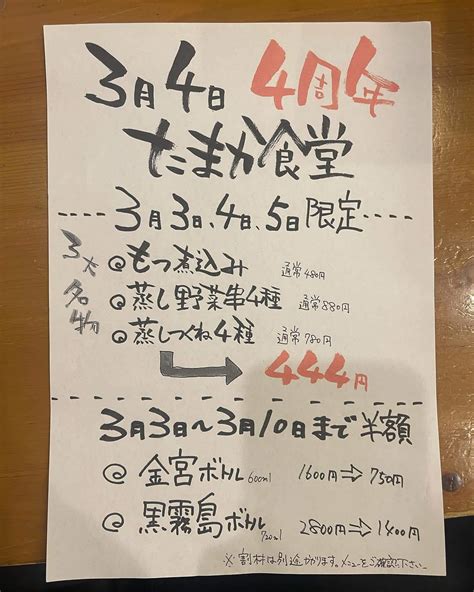 3月4日 4周年
たまか食堂
3月3日、4日、5日限定
3大名物
@もつ煮込み 通常480円
@蒸し野菜串4種 通常880円
@蒸しつくね4種 通常780円
444円
3月3日〜3月10日まで半額
@ 金宮ボトル 600ml 1600円⇒750円
@ 黒霧島ボトル 720ml 2800円⇒1400円
※割材は別途かかります。メニューをご確認下さい